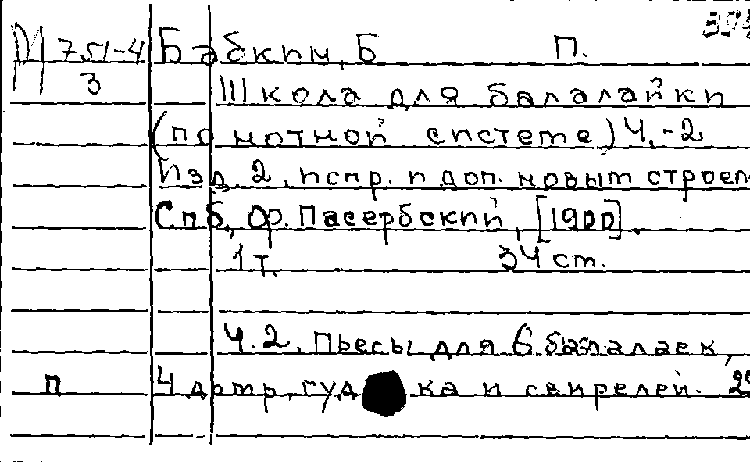 М 751-4 Бабкин, Б П.
3 Школа для балалайки
(по нотной системе) Ч.-2
Изд. 2, испр. и доп. новым строем
Спб, Ф. Пасербский, [1900].
1 т. 34 ст.
Ч. 2. Пьесы для 6 балалаек,
п 4 домр, гуд ка и свирелей.